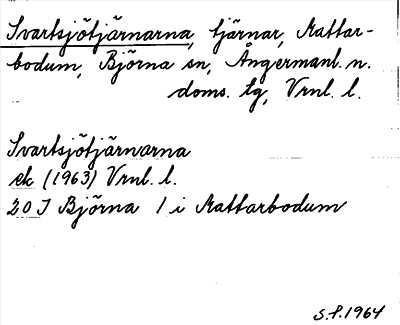 Svartsjötjärnarna, tjärnar, Mattar-
bodum, Björna sn, Ångermanl. n.
doms. lg, Vrnl. l.
Svartsjötjärnarna
ek (1963) Vrnl. l.
20 J Björna 1 i Mattarbodum
S.P.1964